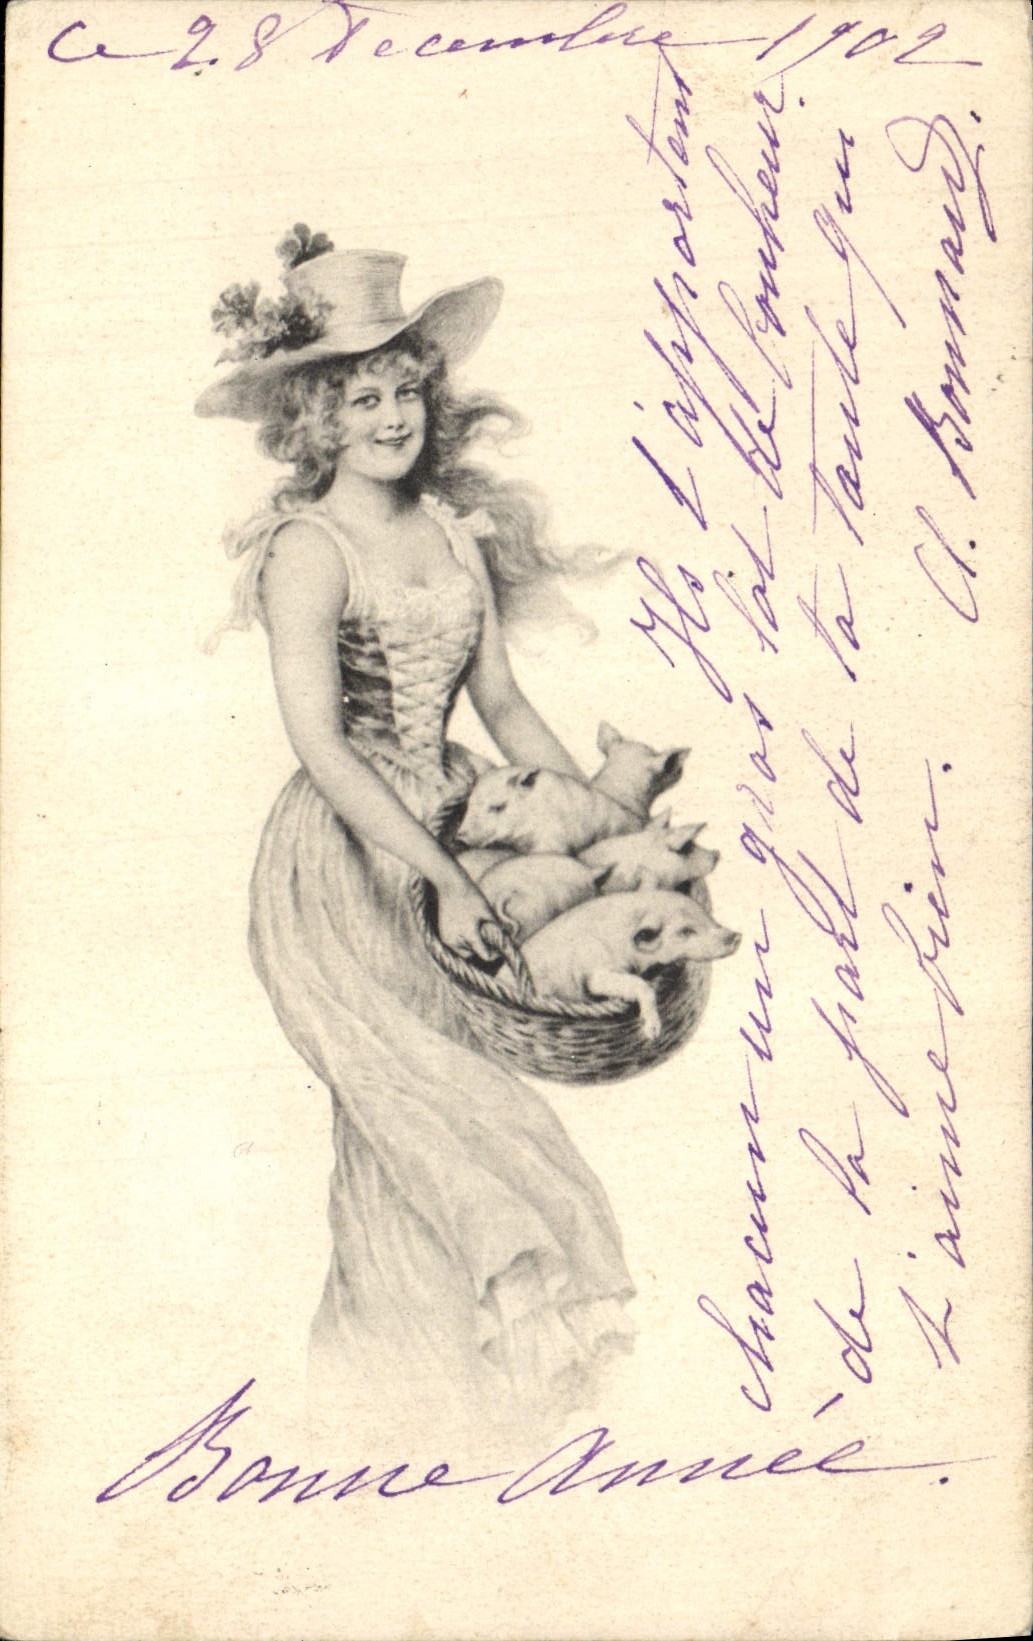 Ce 28 Décembre 1902
Ils t'apportent
chacun un gros lot de bonheur.
de la part de ta tante qui
t'aime bien. A. Bonnaud.
Bonne année.